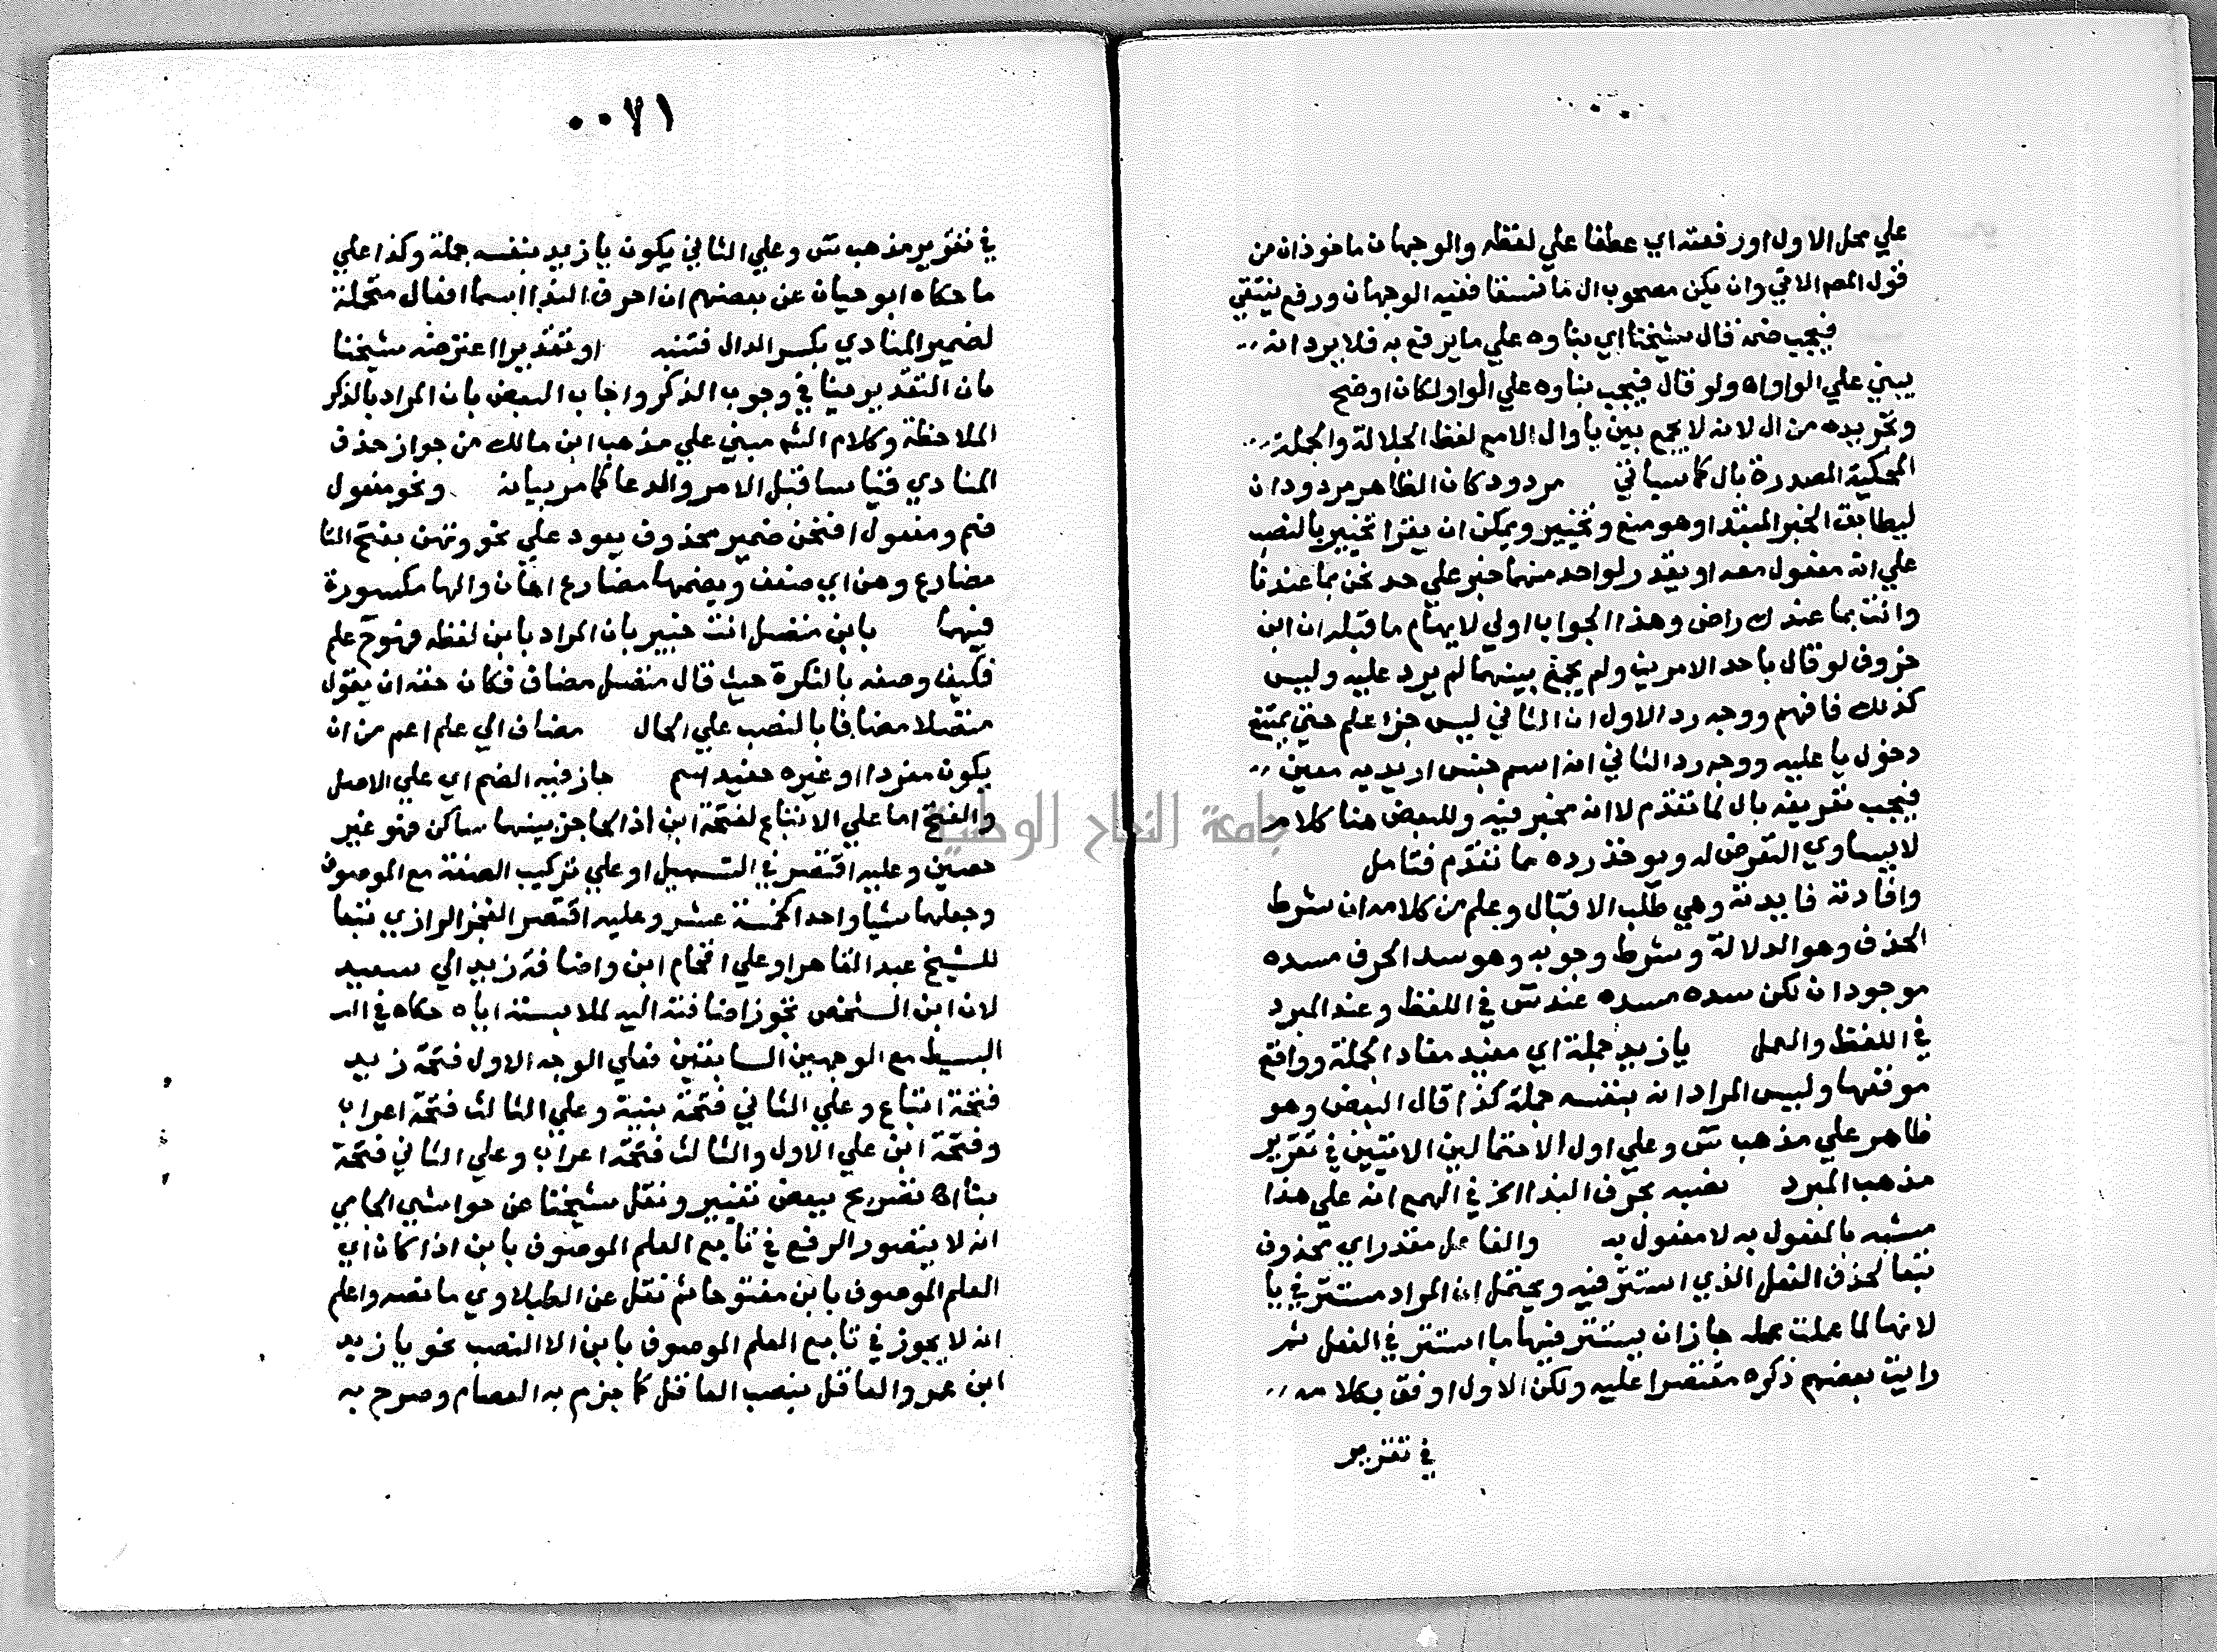 علي محل الاول او رفعته اي عطفا علي لفظه والوجهان ماخوذان من
قول المصم الاتي وان يكن مصحوب ال ما نسقا ففيه الوجهان ورفع ينتقي
فيجب ضمه قال شيخنا اي بناوه علي ما يرفع به فلا يرد انه
يبني علي الواو اه ولو قال فيجب بناوه علي الواو لكان اوضح
وتجريده من ال لانه لا يجمع بين يا وال الا مع لفظ الجلالة والجملة
المحكية المصدرة بال كما سياتي مردود كان الظاهر مردودان
ليطابق الخبر المبتدا وهو منع وتخيير ويمكن ان يقرا تخيير بالنصب
علي انه مفعول معه او يقدر لواحد منهما خبر علي حد نحن بما عندنا
وانت بما عندك راض وهذا الجواب اولي لايهام ما قبله ان ابن
خروف لو قال باحد الامرين ولم يجمع بينهما لم يرد عليه وليس
كذلك فافهم ووجه رد الاول ان الثاني ليس جزا علم حتي يمتنع
دخول يا عليه ووجه رد الثاني انه اسم جنس اريد به معين
فيجب تعريفه بال لما تقدم لا انه مخير فيه وللبعض هنا كلام
لا يساوي التعرض له ويوخذ رده مما تقدم فتامل
وافادته فايدته وهي طلب الاقبال وعلم من كلامه ان شرط
الحذف وهو الدلالة وشرط وجوبه وهو سد الحرف مسده
موجودان لكن سده مسده عند س في اللفظ وعند المبرد
في اللفظ والعمل يا زيد جملة اي مفيد مفاد الجملة وواقع
موقعها وليس المراد انه بنفسه جملة كذا قال البعض وهو
ظاهر علي مذهب س وعلي اول الاحتمالين الاتيين في تقرير
مذهب المبرد نصبه بحرف الندا الخ في الهمع انه علي هذا
مشبه بالمفعول به لا مفعول به والفاعل مقدر اي محذوف
تبعا لحذف الفعل الذي استتر فيه ويحتمل ان المراد مستتر في يا
لانها لما عملت عمله جاز ان يستتر فيها ما استتر في الفعل ثم
رايت بعضهم ذكره مقتصرا عليه ولكن الاول اوفق بكلامه
في تقرير
٠٠٧١
في تقرير مذهب س وعلي الثاني يكون يا زيد بنفسه جملة وكذا علي
ما حكاه ابو حيان عن بعضهم ان احرف الندا اسما افعال متحملة
لضمير المنادي بكسر الدال فتنبه او تقديرا اعترضه شيخنا
بان التقدير ينافي وجوب الذكر واجاب البعض بان المراد بالذكر
الملاحظة وكلام الشم مبني علي مذهب ابن مالك من جواز حذف
المنادي قياسا قبل الامر والدعا كما مر بيانه ونحو مفعول
قم ومفعول افتحن ضمير محذوف يعود علي نحو وتهن بفتح التا
مضارع وهن اي ضعف وبضمها مضارع اهان والها مكسورة
فيهما بابن منفصل انت خبير بان المراد بابن لفظه فهو ح علم
فكيف وصفه بالنكرة حيث قال منفصل مضاف فكان حقه ان يقول
منفصلا مضافا بالنصب علي الحال مضاف الي علم اعم من ان
يكون مفردا او غيره حفيد اسم جاز فيه الضم اي علي الاصل
والفتح اما علي الاتباع لفتحة ابن اذ الحاجز بينهما ساكن فهو غير
حصين وعليه اقتصر في التسهيل او علي تركيب الصفة مع الموصوف
وجعلهما شيا واحدا كخمسة عشر وعليه اقتصر الفخر الرازي تبعا
للشيخ عبد القاهر او علي اقحام ابن واضافة زيد الي سعيد
لان ابن الشخص تجوز اضافته اليه لملابسته اياه حكاه في الد
البسيط مع الوجهين السابقين فعلي الوجه الاول فتحة زيد
فتحة اتباع وعلي الثاني فتحة بنية وعلي الثالث فتحة اعراب
وفتحة ابن علي الاول والثالث فتحة اعراب وعلي الثاني فتحة
بنا اه تصريح ببعض تغيير ونقل شيخنا عن حواشي الجامي
انه لا يتصور الرفع في تابع العلم الموصوف بابن اذا كان اي
العلم الموصوف بابن مفتوحا ثم نقل عن الطبلاوي ما نصه واعلم
انه لا يجوز في تابع العلم الموصوف بابن الا النصب نحو يا زيد
ابن عمرو العاقل بنصب العاقل كما جزم به العصام وصرح به
جامعة النجاح الوطنية